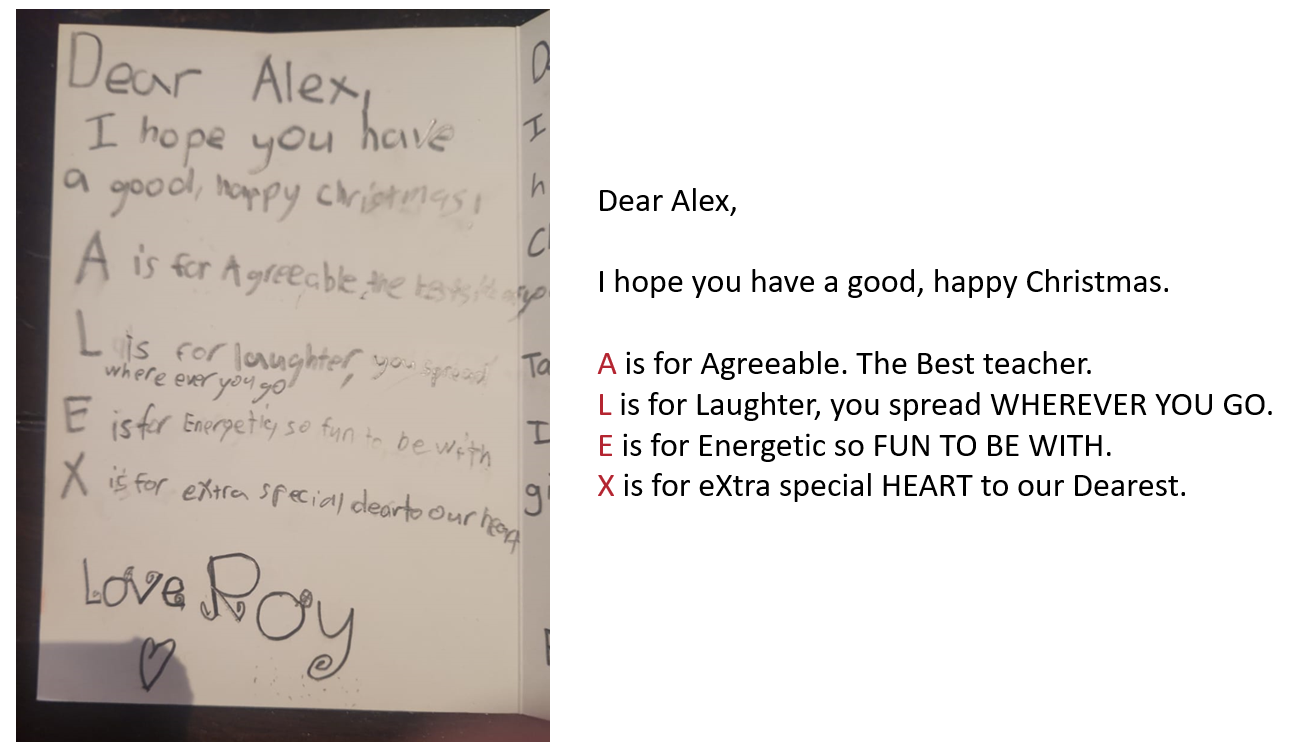 Dear Alex,
I hope you have
a good, happy christmas,
A is for Agreeable, the
L is for laughter, you spread
where ever you go
E is for Energetic, so fun to be with
X is for eXtra special dear to our heart
Love Roy
D
I
h
C
Ta
I
gi
Dear Alex,
I hope you have a good, happy Christmas.
A is for Agreeable. The Best teacher.
L is for Laughter, you spread WHEREVER YOU GO.
E is for Energetic so FUN TO BE WITH.
X is for eXtra special HEART to our Dearest.